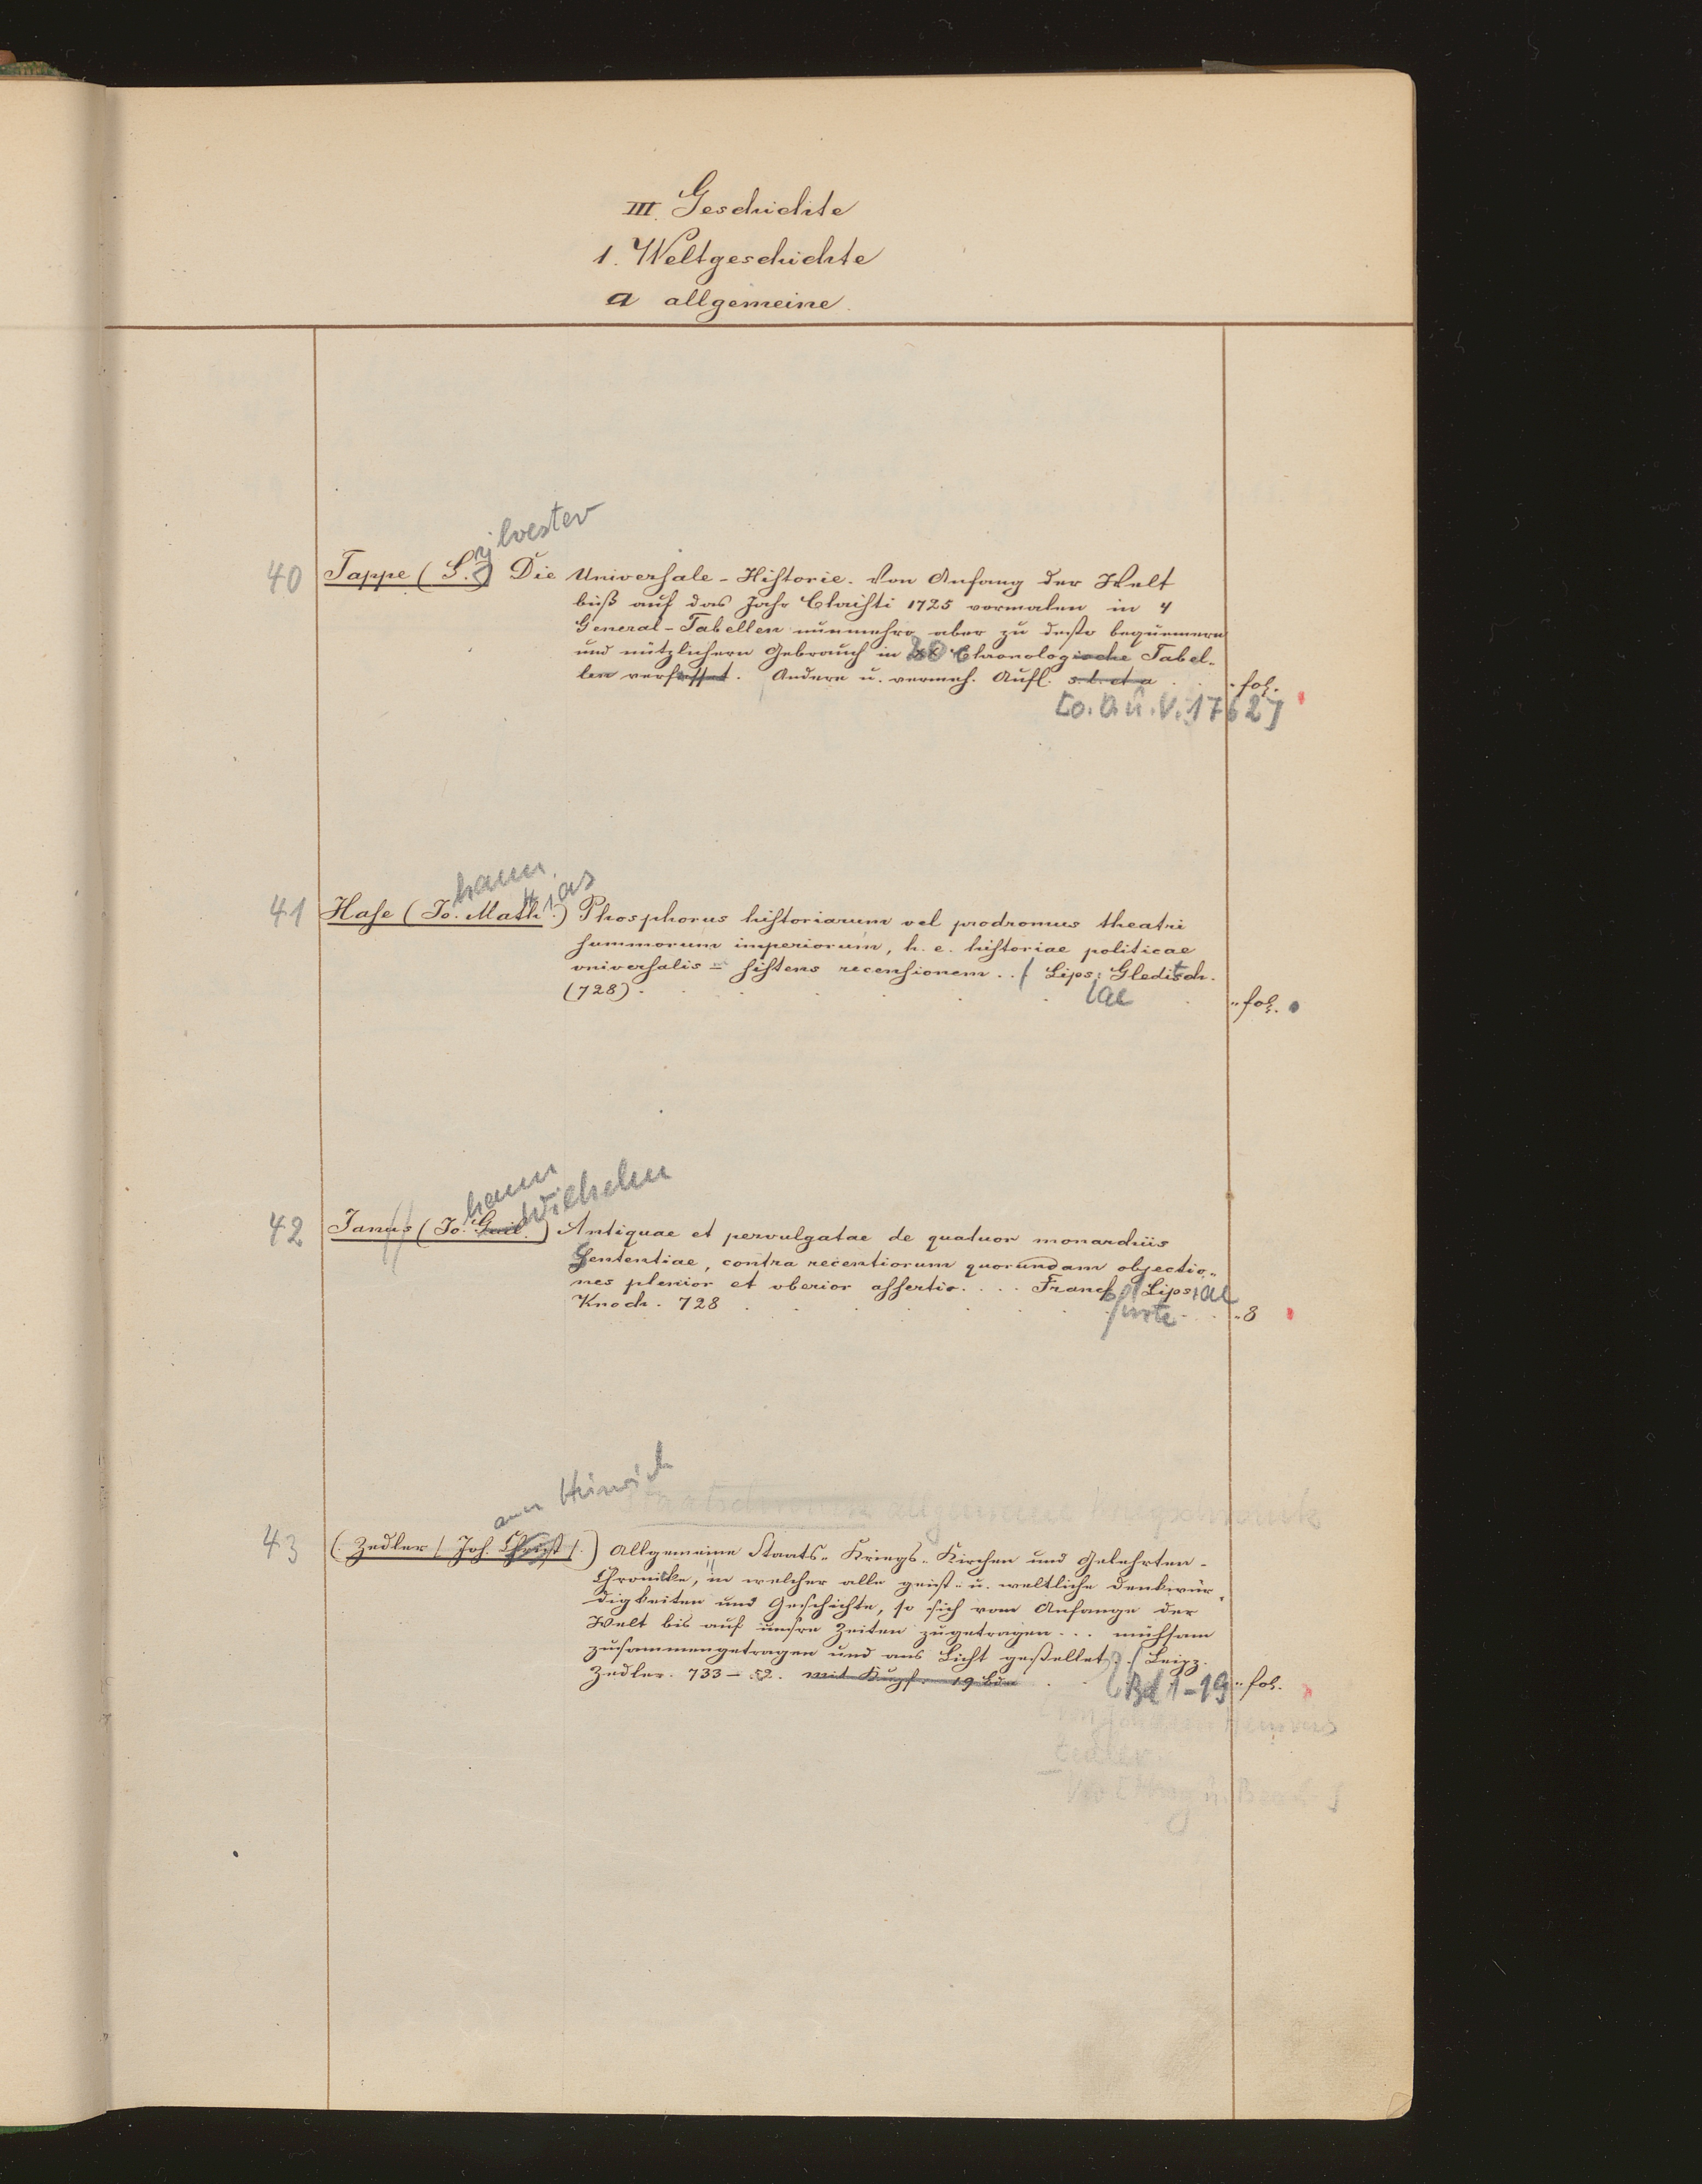 III. Geschichte
1. Weltgeschichte
a allgemeine.
ylvester
40 Tappe (S.) Die Universale-Historie. Von Anfang der Welt
biß auf das Jahr Christi 1725 vormalen in 4
General-Tabellen nunmehro aber zu desto bequemern
und nützlichern Gebrauch in 20 Chronologische Tabel-
len verfasset. Andere u. vermeh. Aufl. s. l. et a . . fol.
[o. O. u. V. 1762]
hann
ias
41 Hase (Jo. Math.) Phosphorus historiarum vel prodromus theatri
summorum imperiorum, h. e. historiae politicae
vniversalis = sistens recensionem . . / Lips: Gleditsch.
iae
(728) . . . . . . „ fol.
hann
Wilhelm
42 Janus (Jo. Guil.) Antiquae et pervulgatae de quatuor monarchiis
Sententiae, contra recentiorum quorundam objectio„
nes plenior et vberior assertio. . . . Francf Lipsiae
furte
Knoch. 728 . . . . . . „ 8
ann Heinrich
43 (Zedler / Joh. Christ /.) Allgemeine Staats- Kriegs- Kirchen und Gelehrten-
Chronicke, in welcher alle geist- u. weltliche Denkwür-
digkeiten und Geschichte, so sich vom Anfange der
Welt bis auf unsre Zeiten zugetragen . . . mühsam
zusammengetragen und ans Licht gestellet. / Leipz.
Zedler. 733 – 52. mit Kupf. 19 Bde . . „ fol.
Bd 1-19